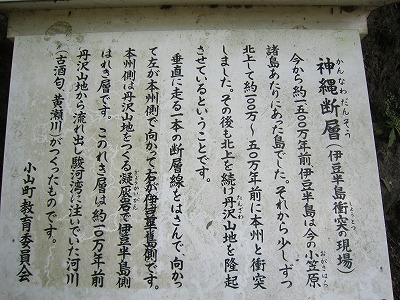 かんなわだんそう
神縄断層（伊豆半島衝突の現場）
しょうとつ
今から約一五〇〇万年前伊豆半島は今の小笠原
おがさわら
諸島あたりにあった島でした。それから少しずつ
北上して約一〇〇万〜五〇万年前に本州と衝突
しました。その後も北上を続け丹沢山地を隆起
たんざわ
させているということです。
垂直に走る一本の断層線をはさんで、向かっ
て左が本州側で向かって右が伊豆半島側です。
本州側は丹沢山地をつくる凝灰岩で伊豆半島側
ぎょうかいがん
はれき層です。このれき層は約一〇万年前
丹沢山地から流れ出し駿河湾に注いでいた河川
（古酒匂、黄瀬川）がつくったものです。
小山町教育委員会